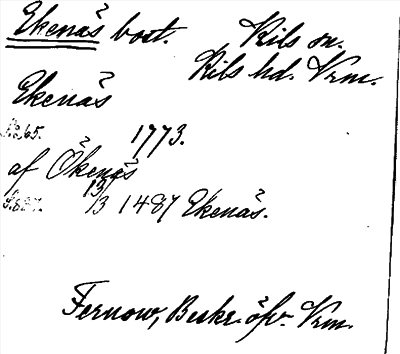 Ekenäs bost. Kils sn.
Kils hd. Vrm.
Ekenäs
S. 265. 1773.
af Ökenäs
S. 627. 13/3 1487 Ekenäs.
Fernow, Beskr. öfv. Vrm.